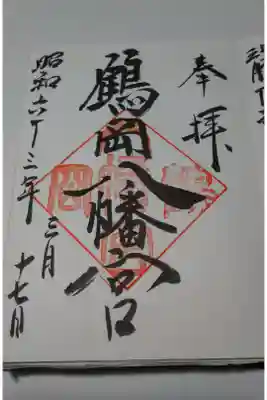 奉拝
鶴岡八幡宮
昭和六十三年三月十七日